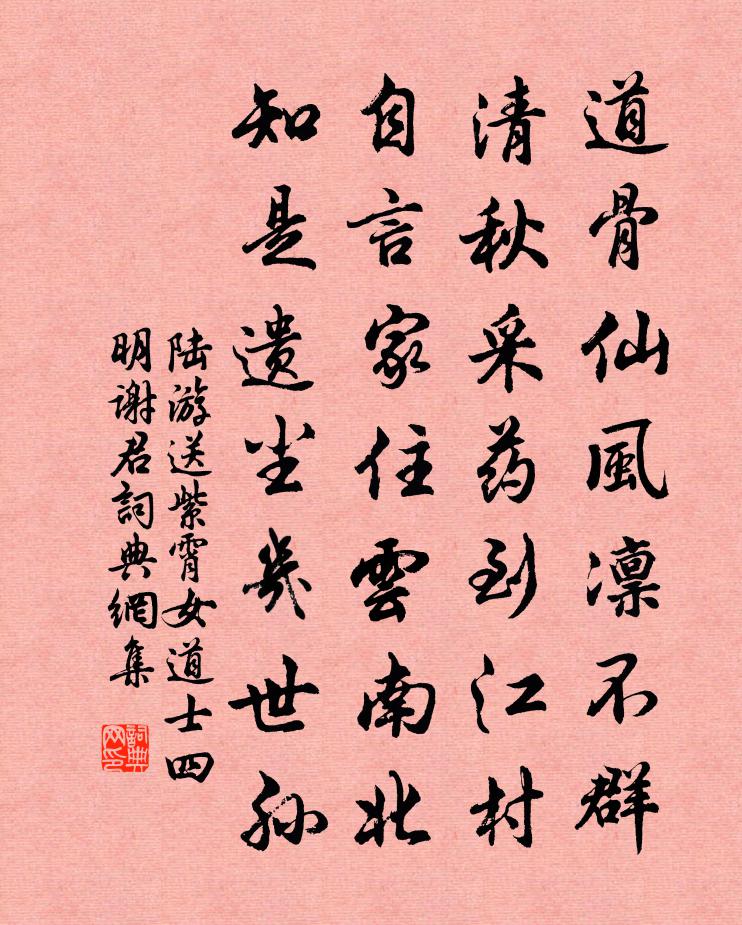 道骨仙風凛不群
清秋采药到江村
自言家住雲南北
知是遗尘幾世孙
陆游送紫霄女道士四
明謝君詞典網集
詞典
网印